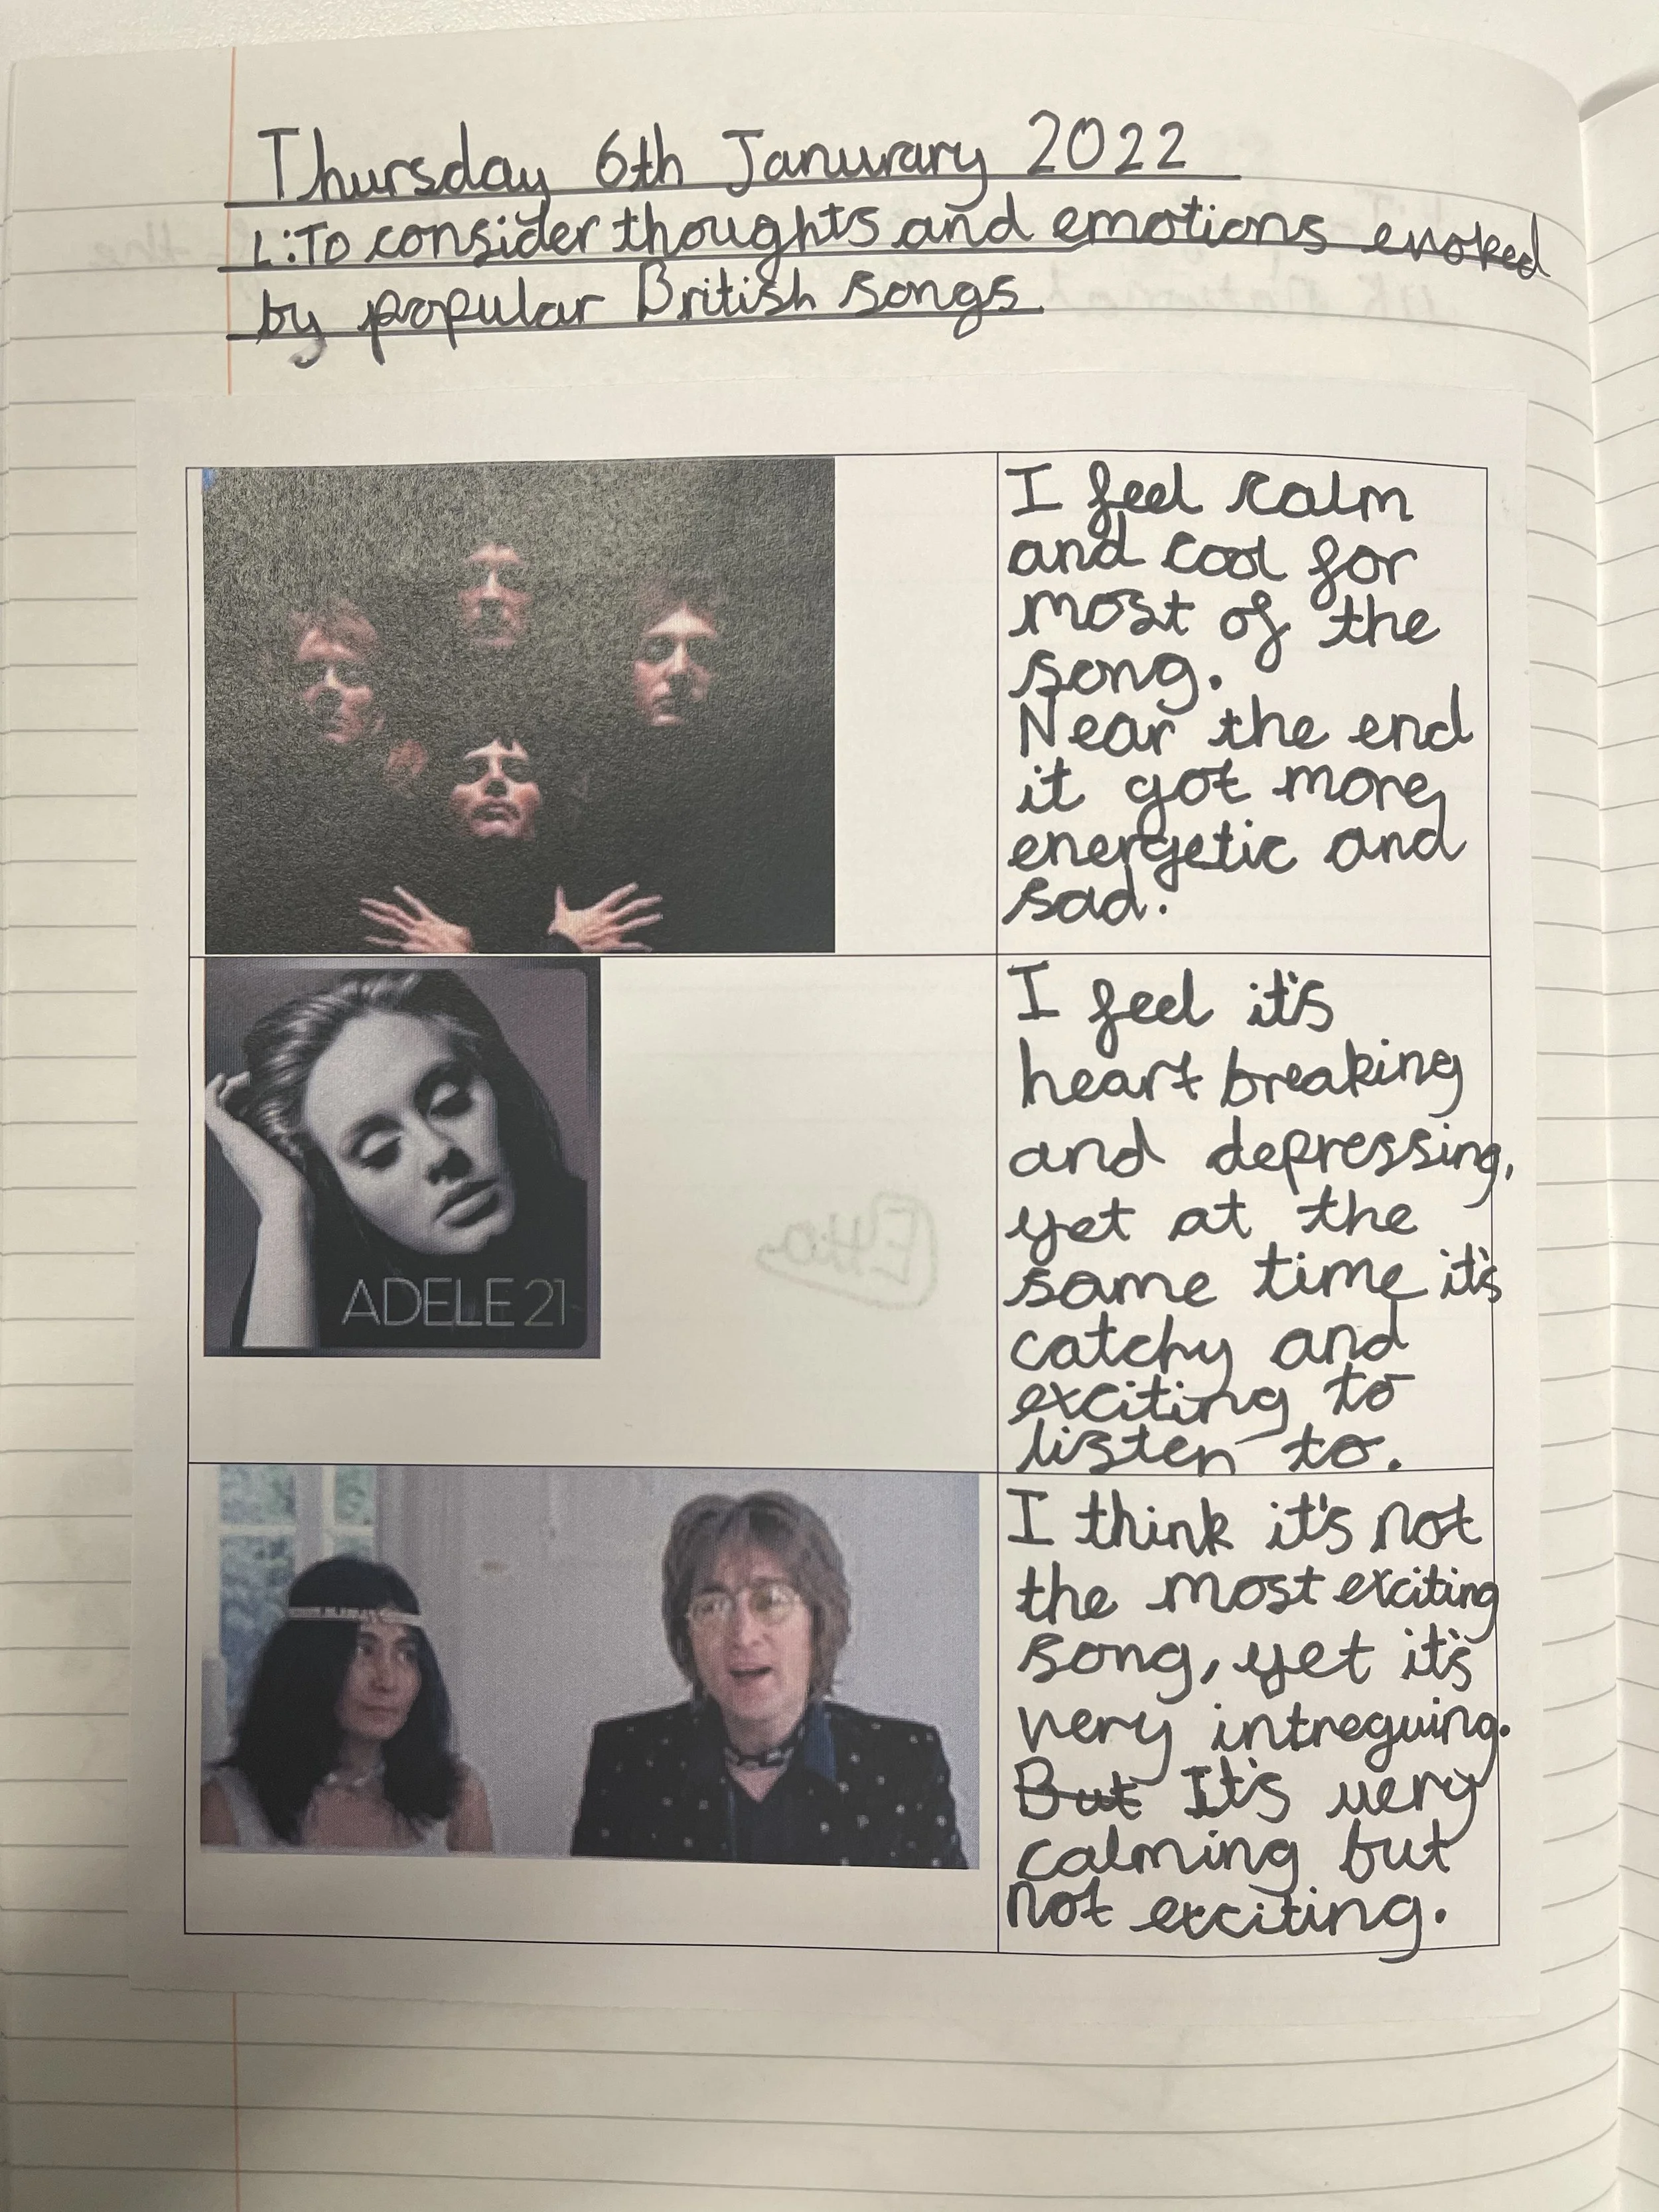 Thursday 6th Janurary 2022
L:To consider thoughts and emotions evoked
by popular British songs
I feel calm
and cool for
most of the
song.
Near the end
it got more
energetic and
sad.
ADELE 21
I feel it's
heart breaking
and depressing,
yet at the
same time it's
catchy and
exciting to
listen to.
I think it's not
the most exciting
song, yet it's
very intreguing.
But It's very
calming but
not exciting.